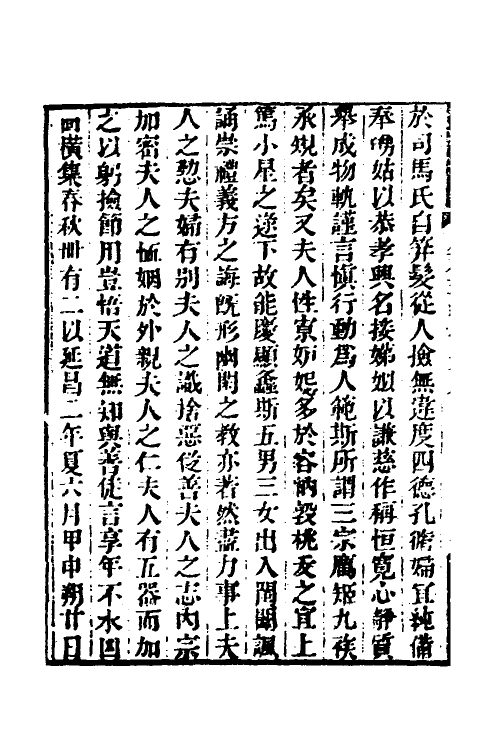 於司馬氏自笄髮從人撿無違度四德孔脩婦宜純備
奉嚊姑以恭孝興名接娣姒以謙慈作稱恒寬心靜質
舉成物軌謹言慎行動為人範斯所謂三宗厲矩九族
承規者矣又夫人性寡妒妮多於容納敦桃夭之宜上
篤小星之逮下故能慶顯螽斯五男三女出入閨闈諷
誦崇禮義方之誨旣形幽閑之教亦著然盡力事上夫
人之懃夫婦有別夫人之識捨惡從善夫人之志內宗
加密夫人之恤姻於外親夫人之仁夫人有五器而加
之以躬撿節用豈悟天道無知與善徒言享年不永四
橫集春秋卌有二以延昌二年夏六月甲申朔廿日